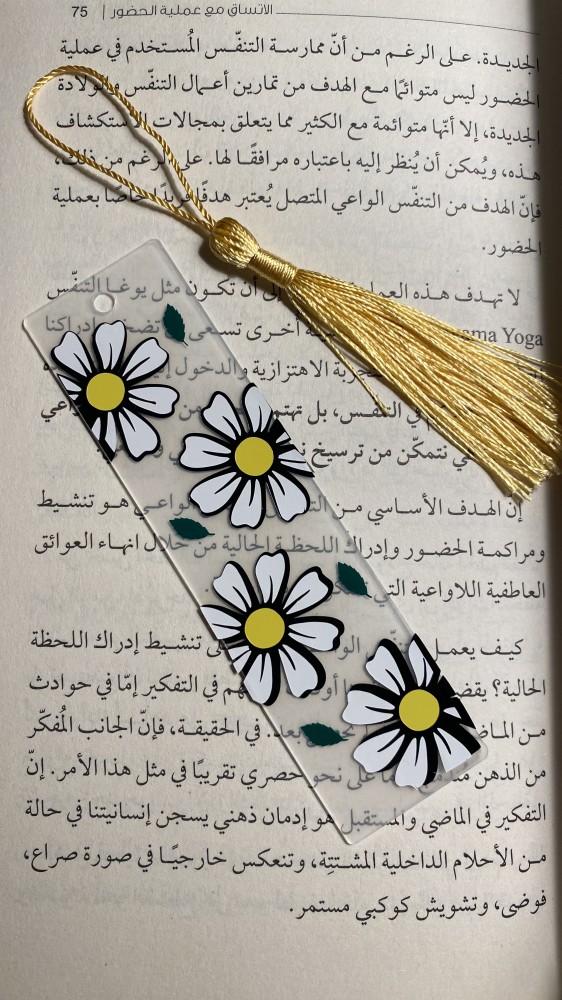 الاتساق مع عملية الحضور | 75
الجديدة. على الرغم من أنّ ممارسة التنفّس المُستخدم في عملية
الحضور ليس متوائمًا مع الهدف من تمارين أعمال التنفّس والولادة
الجديدة، إلا أنّها متوائمة مع الكثير مما يتعلق بمجالات الاستكشاف
هذه، ويُمكن أن يُنظر إليه باعتباره مرافقًا لها. على الرغم من ذلك،
فإنّ الهدف من التنفّس الواعي المتصل يُعتبر هدفًا فريدًا خاصًا بعملية
الحضور.
لا تهدف هذه العملية إلى أن تكون مثل يوغا التنفّس
ama Yoga أخرى تسعى تضخيم إدراكنا
التجربة الاهتزازية والدخول
في التنفس، بل تهتم من
نتمكّن من ترسيخ
إنّ الهدف الأساسي من التنفّس الواعي هو تنشيط
ومراكمة الحضور وإدراك اللحظة الحالية من خلال انهاء العوائق
العاطفية اللاواعية التي
كيف يعمل التنفّس الواعي على تنشيط إدراك اللحظة
الحالية؟ يقضي في التفكير إمّا في حوادث
من الماضي بعد. في الحقيقة، فإنّ الجانب المُفكّر
من الذهن على نحو حصري تقريبًا في مثل هذا الأمر. إنّ
التفكير في الماضي والمستقبل هو إدمان ذهني يسجن إنسانيتنا في حالة
من الأحلام الداخلية المشتتِة، وتنعكس خارجيًا في صورة صراع،
فوضى، وتشويش كوكبي مستمر.